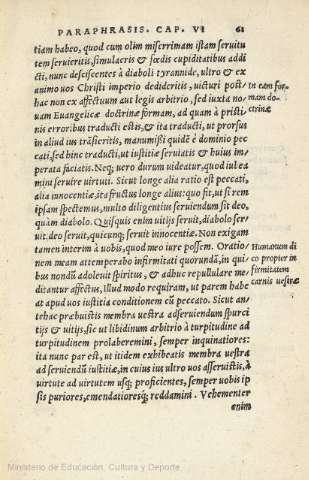 PARAPHRASIS. CAP. VI 61
tiam habeo, quod cum olim miserrimam istam seruitu
tem seruieritis, simulacris & fœdis cupiditatibus addi
cti, nunc desciscentes à diaboli tyrannide, ultro & ex
animo uos Christi imperio dedidcritis, uicturi post
hac non ex affectuum aut legis arbitrio, sed iuxta no=
uam Euangelicæ doctrinæ formam, ad quam à pristi
nis erroribus traducti estis, & ita traducti, ut prorsus
in aliud uos trāsieritis, manumissi quidē è dominio pec
cati, sed hinc traducti, ut iustitiæ seruiatis & huius im=
perata faciatis. Neq; uero durum uideatur, quod iubea
mini seruire uirtuti. Sicut longe alia ratio est peccati,
alia innocentiæ, ita fructus longe alius: quo fit, ut si rem
ipsam spectemus, multo diligentius seruiendum sit deo,
quàm diabolo. Quisquis enim uitijs seruit, diabolo ser=
uit. deo seruit, quicunq; seruit innocentiæ. Non exigam
tamen interim à uobis, quod meo iure possem. Oratio=
nem meam attemperabo infirmitati quorundā, in qui
bus nondū adoleuit spiritus, & adhuc repullulare me=
ditantur affectus, illud modo requiram, ut parem habe
at apud uos iustitia conditionem cū peccato. Sicut an=
tehac præbuistis membra uestra ad seruiendum spurci
tijs & uitijs, sic ut libidinum arbitrio à turpitudine ad
turpitudinem prolaberemini, semper inquinatiores:
ita nunc par est, ut itidem exhibeatis membra uestra
ad seruiendū iustitiæ, in cuius ius ultro uos asseruistis, à
uirtute ad uirtutem usq; proficientes, semper uobis ip
sis puriores, emendatioresq; reddamini. Vehementer
enim
In eam for=
mam do=
ctrinæ
Humanum di
co propter in
firmitatem
carnis uestræ
Ministerio de Educación, Cultura y Deporte